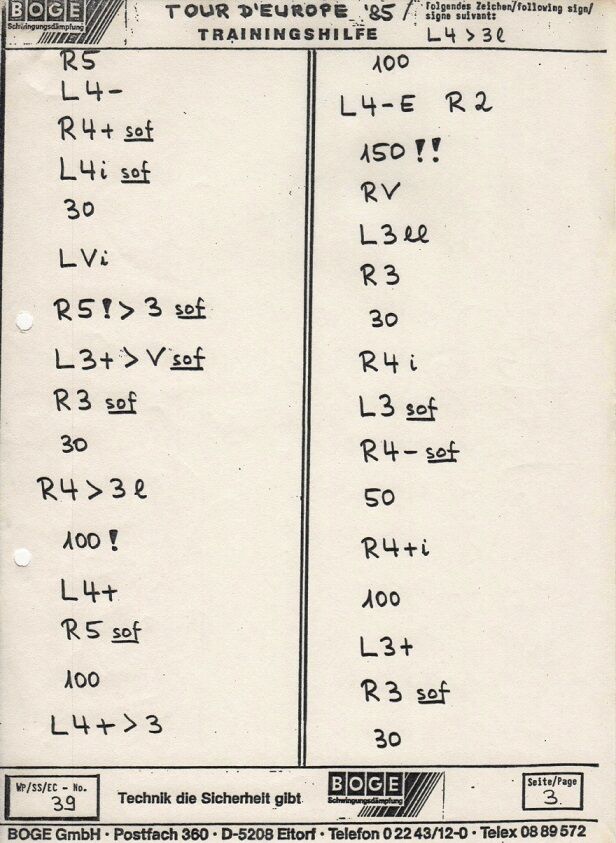 BOGE
Schwingungsdämpfung
TOUR D'EUROPE '85 /
TRAININGSHILFE
folgendes Zeichen/following sign/
signe suivant:
L4 > 3l
R5
L4-
R4+ sof
L4i sof
30
LVi
R5! > 3 sof
L3+ > V sof
R3 sof
30
R4 > 3l
100!
L4+
R5 sof
100
L4+ > 3
100
L4-E R2
150!!
RV
L3ll
R3
30
R4i
L3 sof
R4- sof
50
R4+i
100
L3+
R3 sof
30
WP/SS/EC - No.
39
Technik die Sicherheit gibt
BOGE
Schwingungsdämpfung
Seite/Page
3
BOGE GmbH · Postfach 360 · D-5208 Eitorf · Telefon 0 22 43/12-0 · Telex 08 89 572